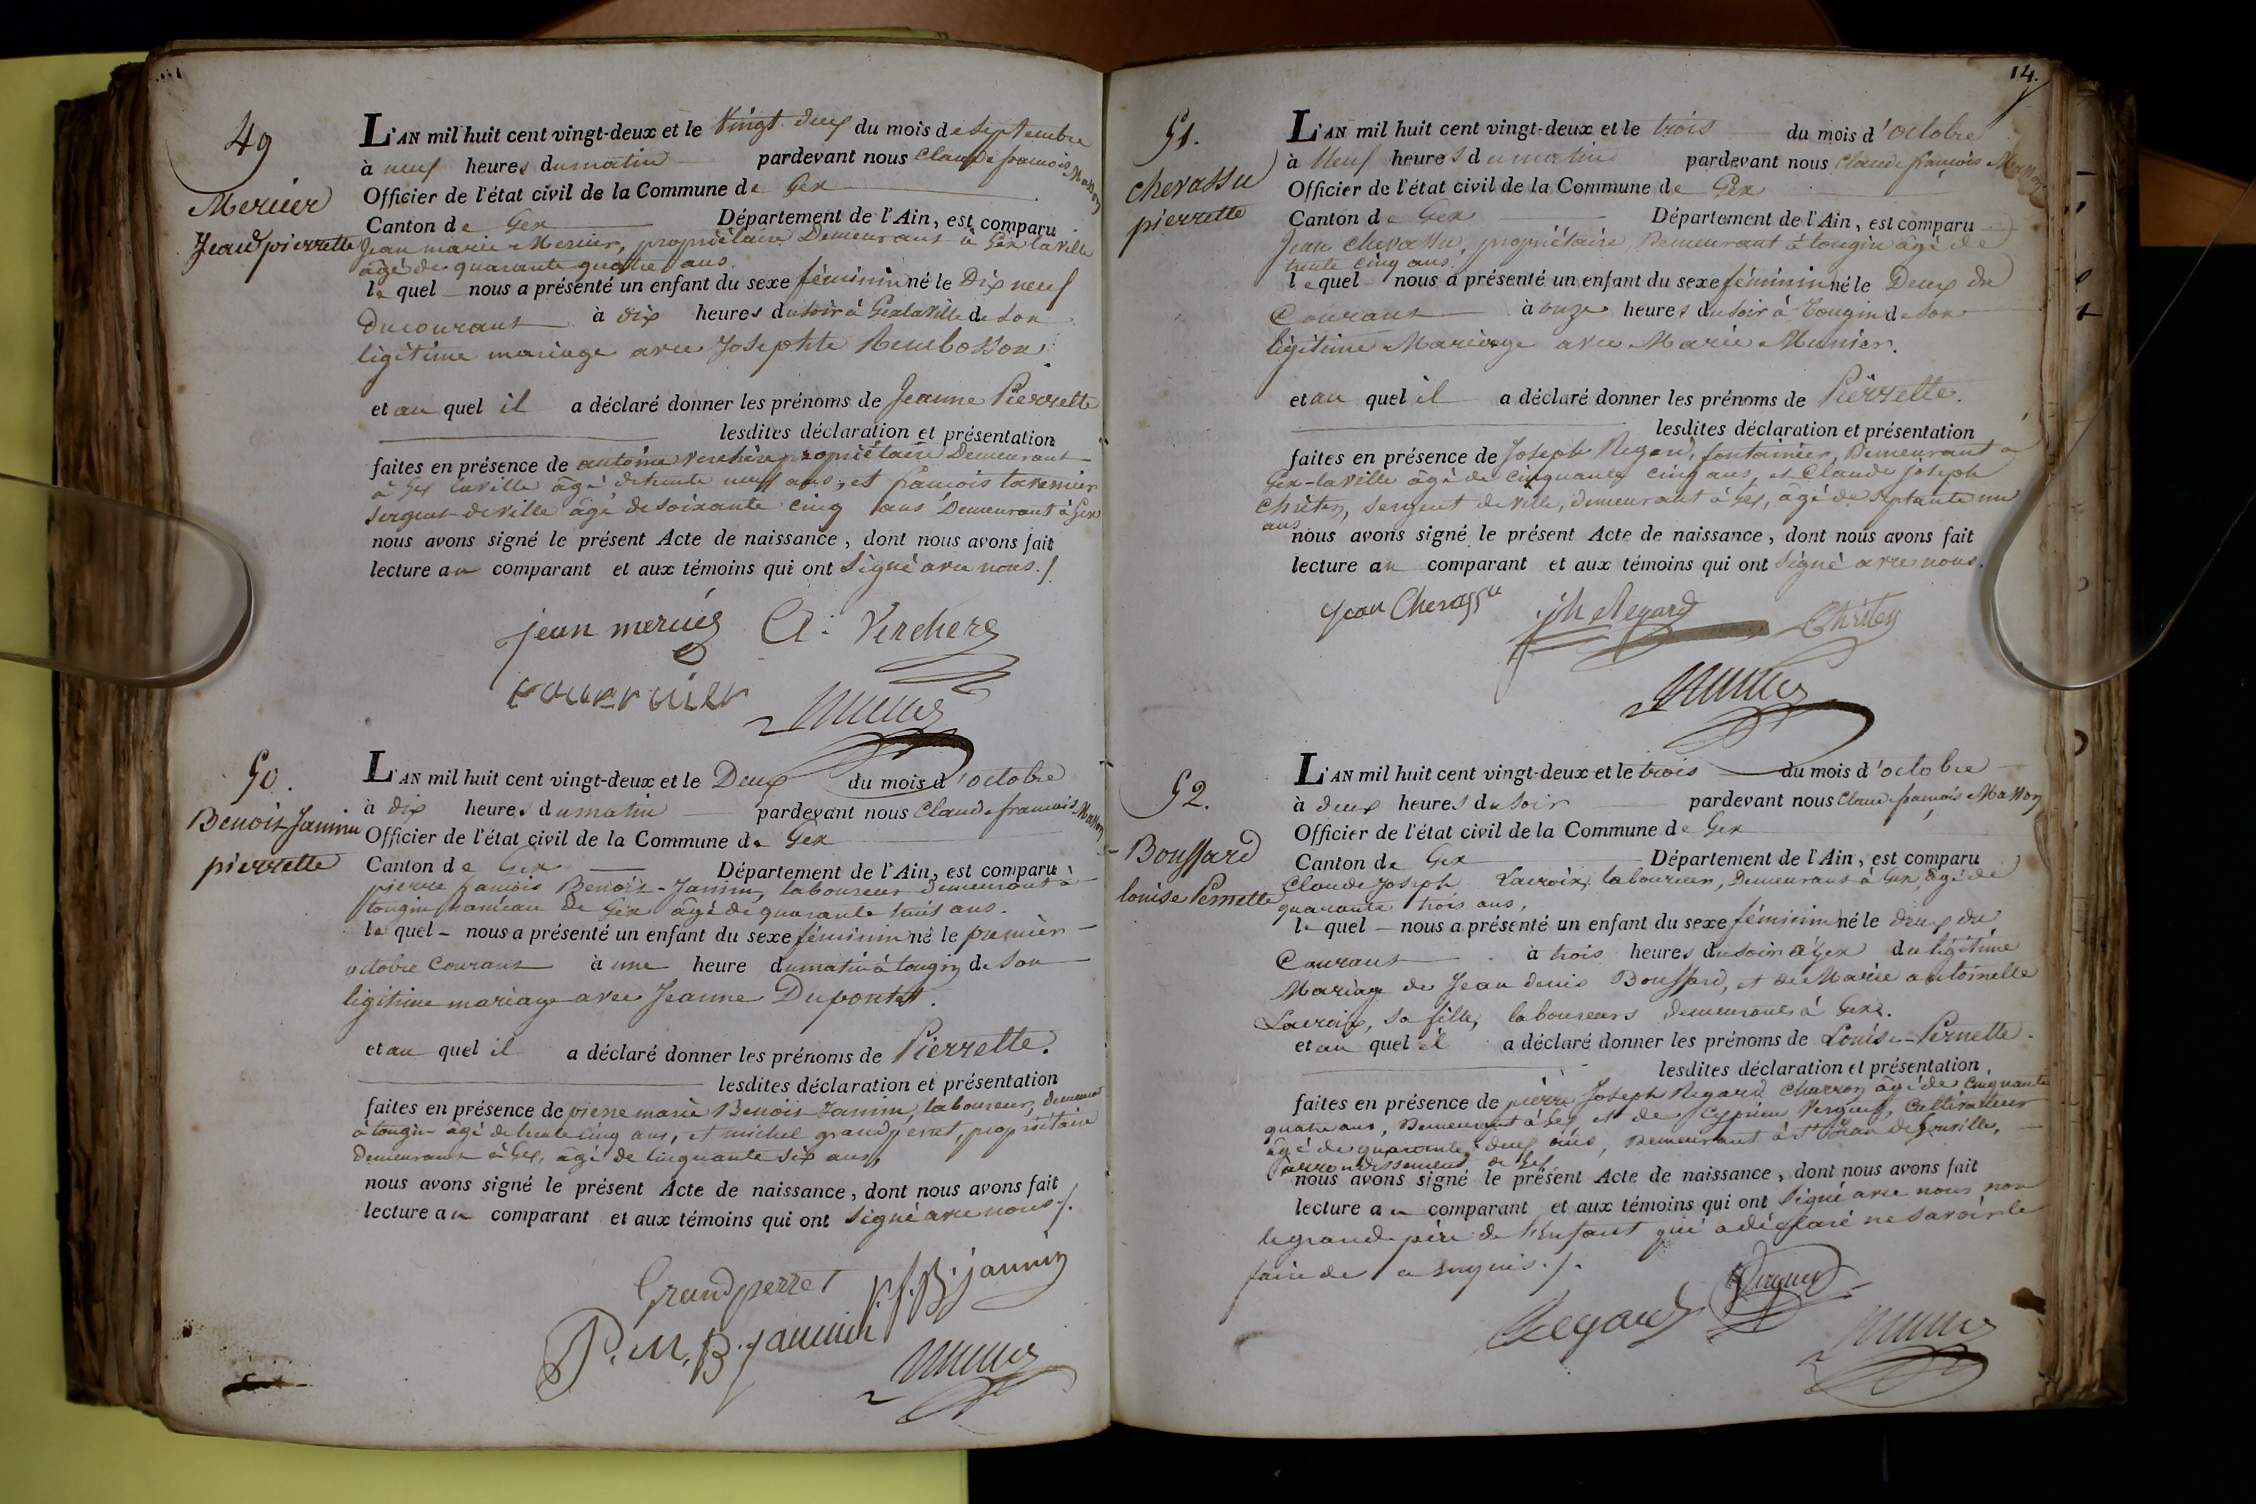 49
Mercier
Jeanne pierrette
L'AN mil huit cent vingt-deux et le Vingt deux du mois de septembre
à neuf heures du matin pardevant nous Claude françois Masson
Officier de l'état civil de la Commune de Gex
Canton de Gex Département de l'Ain, est comparu
Jean marie Mercier, propriétaire Demeurant à Gex la ville
âgé de quarante quatre ans.
lequel nous a présenté un enfant du sexe féminin né le Dix neuf
Du courant à dix heures du soir à Gex la ville de son
légitime mariage avec Josephte Rembosson
et au quel il a déclaré donner les prénoms de Jeanne Pierrette
lesdites déclaration et présentation
faites en présence de antoine Verchère propriétaire Demeurant
à Gex laville âgé de trente neuf ans, et françois tavernier
Sergent de ville âgé de soixante cinq ans Demeurant à Gex
nous avons signé le présent Acte de naissance, dont nous avons fait
lecture au comparant et aux témoins qui ont signé avec nous./.
jean merciés A: Verchere
tavernier
50.
Benoit Jannin
pierrette
L'AN mil huit cent vingt-deux et le Deux du mois d'octobre
à dix heures du matin pardevant nous Claude francois Masson
Officier de l'état civil de la Commune de Gex
Canton de Gex Département de l'Ain, est comparu
pierre françois Benoit-Jannin, laboureur demeurant à
tougin hameau de Gex âgé de quarante huit ans.
lequel nous a présenté un enfant du sexe féminin né le premier
octobre Courant à une heure du matin à tougin de son
légitime mariage avec Jeanne Dupontet.
et au quel il a déclaré donner les prénoms de Pierrette.
lesdites déclaration et présentation
faites en présence de pierre marie Benoit Jannin, laboureur, demeurant
à tougin âgé de trente cinq ans, et michel grandperret, propriétaire
demeurant à Gex, âgé de cinquante six ans,
nous avons signé le présent Acte de naissance, dont nous avons fait
lecture au comparant et aux témoins qui ont signé avec nous./.
Grandperret p.f.B. jannin
P. M. B. jannin
14.
51.
Chevassu
pierrette
L'AN mil huit cent vingt-deux et le trois du mois d'octobre
à Neuf heures du matin pardevant nous Claude françois Masson
Officier de l'état civil de la Commune de Gex
Canton de Gex Département de l'Ain, est comparu
Jean Chevassu, propriétaire, Demeurant à tougin âgé de
trente cinq ans.
lequel nous a présenté un enfant du sexe féminin né le Deux du
Courant à onze heures du soir à Tougin de son
légitime Mariage avec Marie Munier.
et au quel il a déclaré donner les prénoms de Pierrette.
lesdites déclaration et présentation
faites en présence de Joseph Regard, fontainier, Demeurant à
Gex-laville âgé de cinquante cinq ans, et Claude joseph
Chriten, sergent de ville, demeurant à Gex, âgé de septante un
ans
nous avons signé le présent Acte de naissance, dont nous avons fait
lecture au comparant et aux témoins qui ont signé avec nous.
Jean Chevassu jph Regard Chriten
52.
Bouffard
louise Pernette
L'AN mil huit cent vingt-deux et le trois du mois d'octobre
à deux heures du soir pardevant nous Claude françois Masson
Officier de l'état civil de la Commune de Gex
Canton de Gex Département de l'Ain, est comparu
Claude Joseph Lacroix, laboureur, Demeurant à Gex, âgé de
quarante trois ans,
lequel nous a présenté un enfant du sexe féminin né le deux du
Courant à trois heures du soir à Gex du légitime
Mariage de Jean denis Bouffard, et de Marie antoinette
Lacroix, sa fille, laboureurs demeurants à Gex.
et au quel il a déclaré donner les prénoms de Louise-Pernette.
lesdites déclaration et présentation
faites en présence de pierre Joseph Regard Charron âgé de cinquante
quatre ans, Demeurant à Gex, et de Cyprien Verguet, Cultivateur
âgé de quarante deux ans, Demeurant à St Jean de gonville,
arrondissement de Gex
nous avons signé le présent Acte de naissance, dont nous avons fait
lecture au comparant et aux témoins qui ont signé avec nous non
le grand-père de l'enfant qui a déclaré ne savoir le
faire de ce enquis./.
Regard Verguet